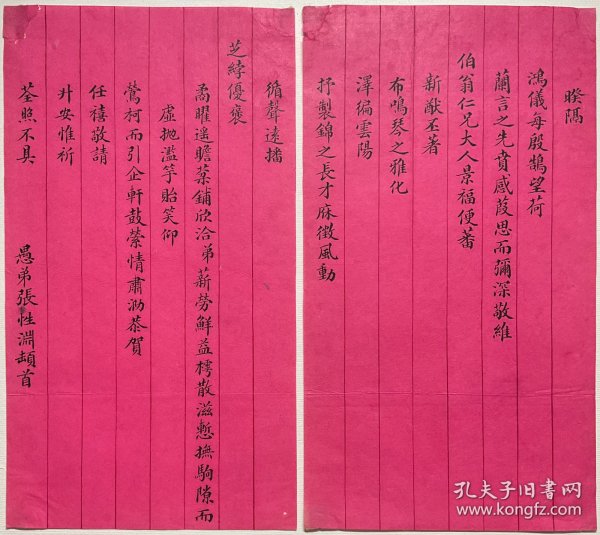 暌隔
鴻儀每殷鵠望荷
蘭言之先賁感葭思而彌深敬維
伯翁仁兄大人景福便蕃
新猷丕著
布鳴琴之雅化
澤徧雲陽
抒製錦之長才庥徵風動
循聲遠播
芝綍優襃
矞曜遥瞻葵鋪欣洽弟薪勞鮮益樗散滋慙撫駒隙而
虛抛濫竽貽笑仰
鶯柯而引企軒鼓縈情肅泐恭賀
任禧敬請
升安惟祈
荃照不具
愚弟張性淵頓首
孔夫子旧书网
www.kongfz.com